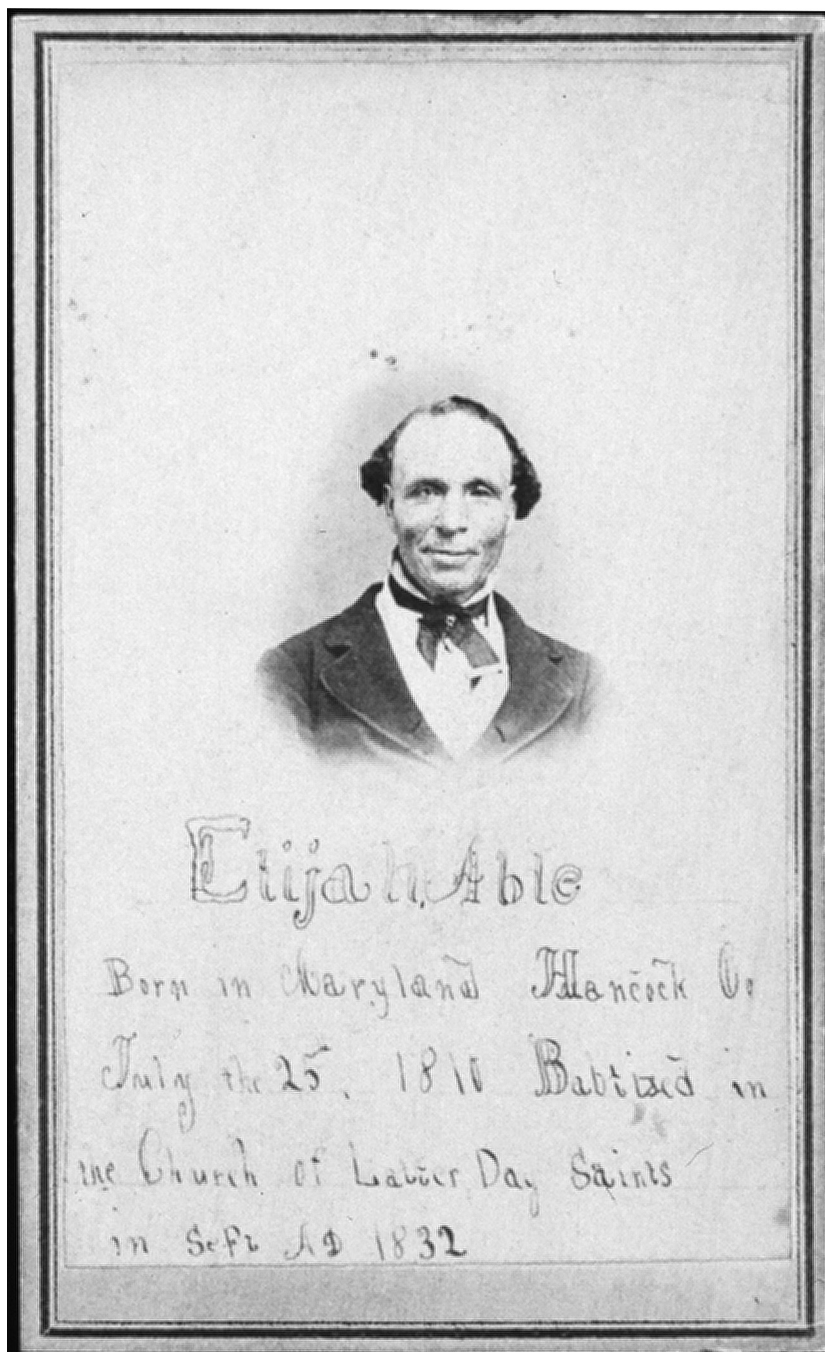 Elijah Able
Born in Maryland Hancock Co
July the 25, 1810 Babtised in
the Church of Latter Day Saints
in Sept AD 1832